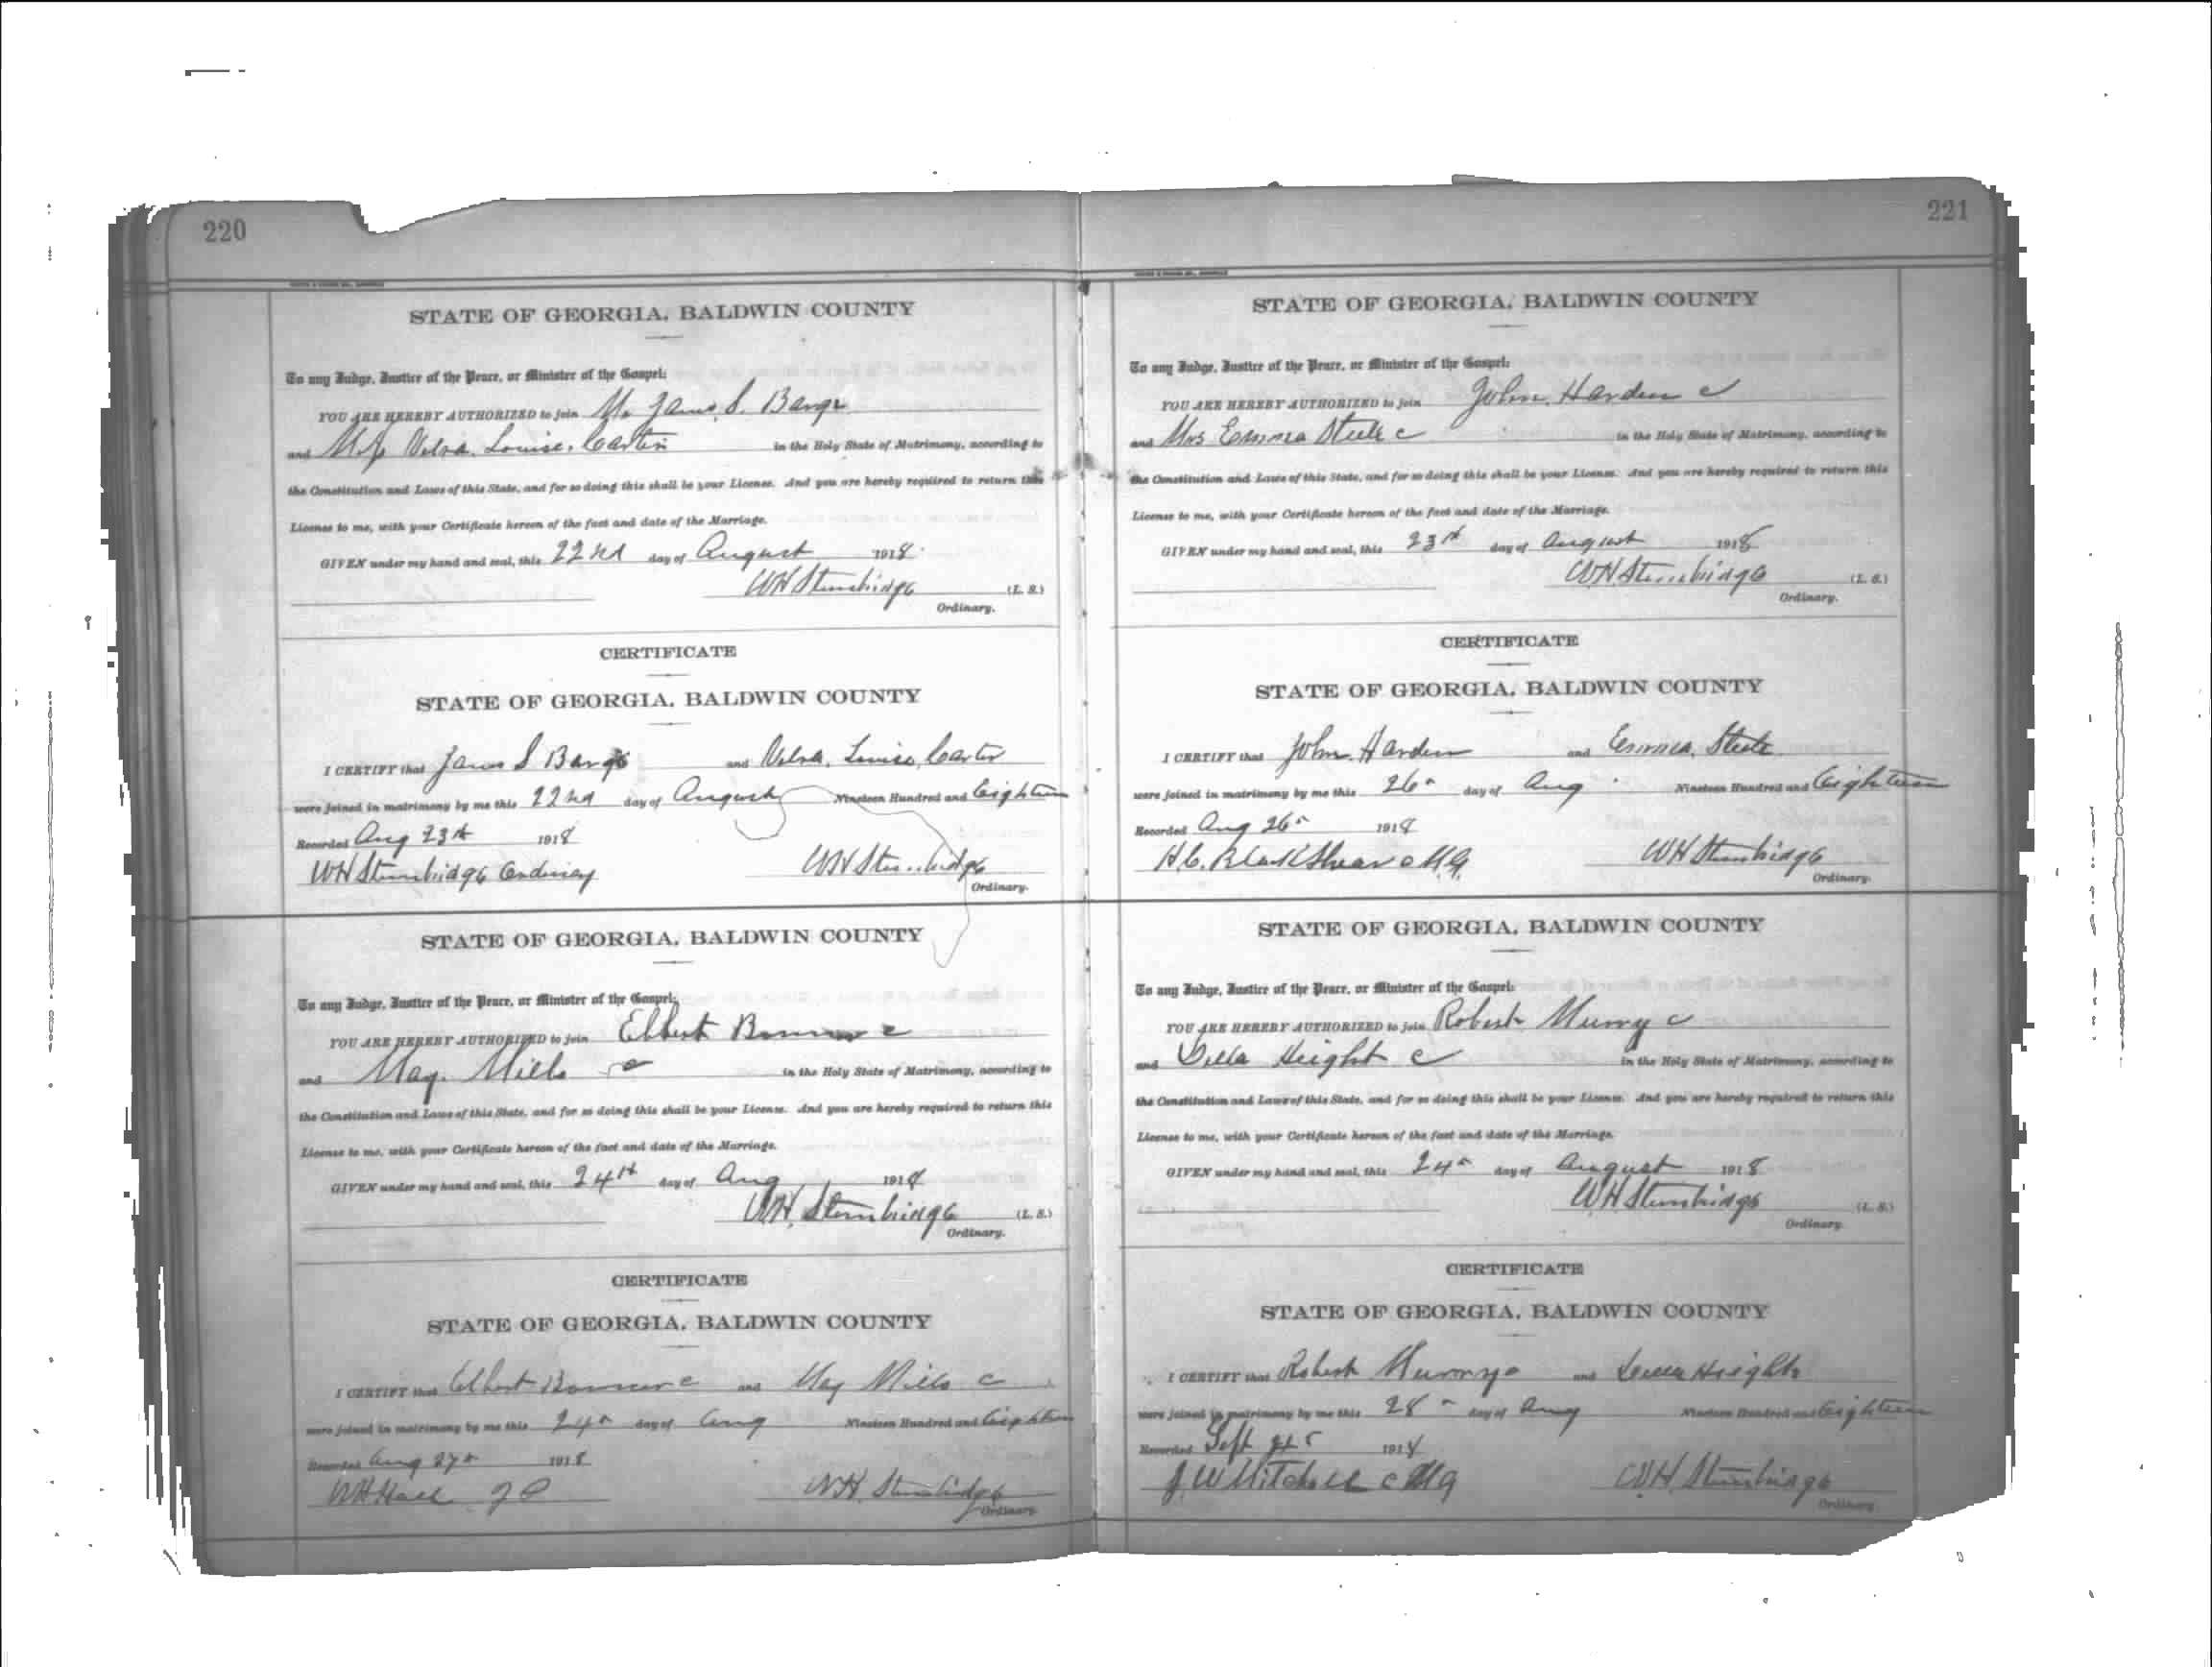 220
STATE OF GEORGIA, BALDWIN COUNTY
To any Judge, Justice of the Peace, or Minister of the Gospel:
YOU ARE HEREBY AUTHORIZED to join Mr James S. Barge
and Louise Carter in the Holy State of Matrimony, according to
the Constitution and Laws of this State, and for so doing this shall be your License. And you are hereby required to return this
License to me, with your Certificate hereon of the fact and date of the Marriage.
GIVEN under my hand and seal, this 22nd day of August 1918
WH Stembridge (L. S.)
Ordinary.
CERTIFICATE
STATE OF GEORGIA, BALDWIN COUNTY
I CERTIFY that James S Barge and Louise Carter
were joined in matrimony by me this 22nd day of August Nineteen Hundred and Eighteen
Recorded Aug 23rd 1918
WH Stembridge Ordinary WH Stembridge
Ordinary.
STATE OF GEORGIA, BALDWIN COUNTY
To any Judge, Justice of the Peace, or Minister of the Gospel:
YOU ARE HEREBY AUTHORIZED to join Elbert c
and May Mills c in the Holy State of Matrimony, according to
the Constitution and Laws of this State, and for so doing this shall be your License. And you are hereby required to return this
License to me, with your Certificate hereon of the fact and date of the Marriage.
GIVEN under my hand and seal, this 24th day of Aug 1918
WH Stembridge (L. S.)
Ordinary.
CERTIFICATE
STATE OF GEORGIA, BALDWIN COUNTY
I CERTIFY that Elbert c and May Mills c
were joined in matrimony by me this 24th day of Aug Nineteen Hundred and Eighteen
Recorded Aug 27th 1918
WH Hall JP WH Stembridge
Ordinary.
221
STATE OF GEORGIA, BALDWIN COUNTY
To any Judge, Justice of the Peace, or Minister of the Gospel:
YOU ARE HEREBY AUTHORIZED to join John Harden c
and Mrs Emma Steele c in the Holy State of Matrimony, according to
the Constitution and Laws of this State, and for so doing this shall be your License. And you are hereby required to return this
License to me, with your Certificate hereon of the fact and date of the Marriage.
GIVEN under my hand and seal, this 23rd day of August 1918
WH Stembridge (L. S.)
Ordinary.
CERTIFICATE
STATE OF GEORGIA, BALDWIN COUNTY
I CERTIFY that John Harden and Emma Steele
were joined in matrimony by me this 26th day of Aug Nineteen Hundred and Eighteen
Recorded Aug 26th 1918
H.C. Blackshear c MG. WH Stembridge
Ordinary.
STATE OF GEORGIA, BALDWIN COUNTY
To any Judge, Justice of the Peace, or Minister of the Gospel:
YOU ARE HEREBY AUTHORIZED to join Robert Murry c
and Height c in the Holy State of Matrimony, according to
the Constitution and Laws of this State, and for so doing this shall be your License. And you are hereby required to return this
License to me, with your Certificate hereon of the fact and date of the Marriage.
GIVEN under my hand and seal, this 24th day of August 1918
WH Stembridge (L. S.)
Ordinary.
CERTIFICATE
STATE OF GEORGIA, BALDWIN COUNTY
I CERTIFY that Robert Murry c and Height
were joined in matrimony by me this 28th day of Aug Nineteen Hundred and Eighteen
Recorded Sept 1918
J.W Mitchell c MG WH Stembridge
Ordinary.